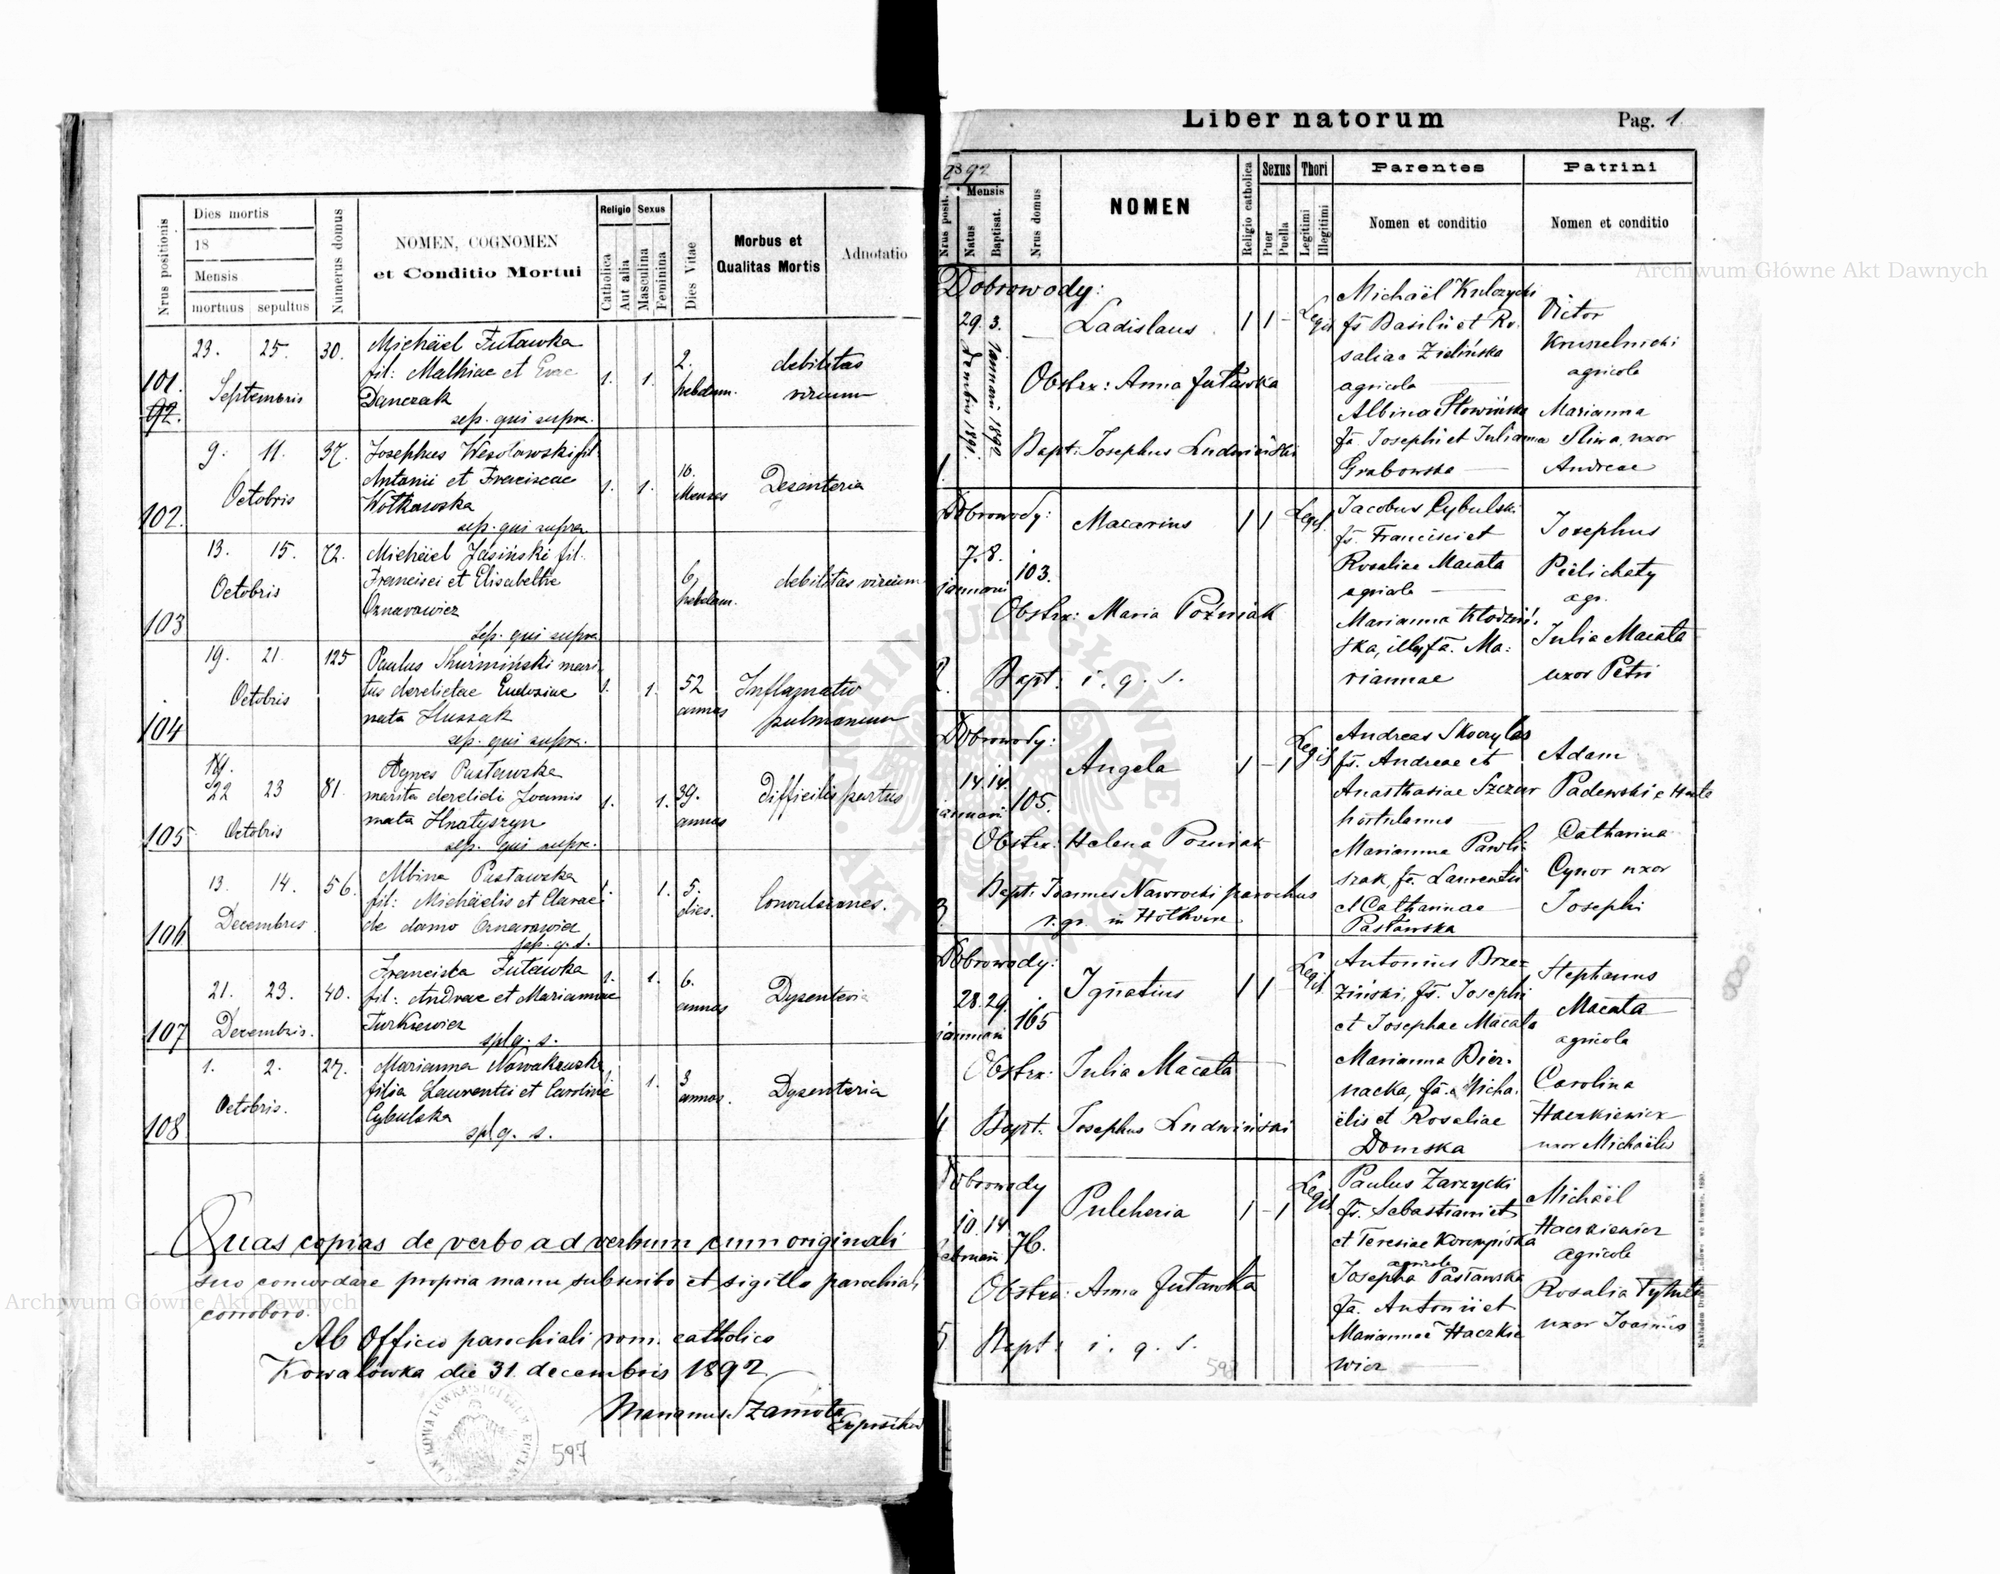 Nrus positionis
Dies mortis
18
Mensis
mortuus sepultus
Numerus domus
NOMEN, COGNOMEN
et Conditio Mortui
Religio
Catholica
Aut alia
Sexus
Masculina
Feminina
Dies Vitae
Morbus et
Qualitas Mortis
Adnotatio
101.
92.
23. 25.
Septembris
30.
Michäel Futawka
fil: Mathiae et Evae
Danczak
sep. qui supra.
1. 1.
2.
hebdom.
debilitas
virium
102.
9. 11.
Octobris
37.
Josephus Wesołowski fil.
Antonii et Franciscae
Wołkowska
sep. qui supra.
1. 1.
16.
Menses
Desenteria
103
13. 15.
Octobris
72.
Michäel Jasiński fil.
Francisci et Elisabethe
sep. qui supra
6.
hebdom.
debilitas virium
104
19. 21.
Octobris
125
Paulus mari-
tus derelictae Eudoxiae
nata Hussak
sep. qui supra.
1. 1.
52
annos
Inflamatio
pulmonum
105
19.
22 23
Octobris
81.
Agnes Pustawska
marita derelicti Joannis
nata Hnatyszyn
sep. qui supra.
1. 1.
39.
annos
difficilis partus
106
13. 14.
Decembris
56.
Albina Pustawska
fil: Michäelis et Clarae
de domo
sep. q. s.
1. 1.
5.
dies.
Convulsiones.
107
21. 23.
Decembris.
40.
Franciska Futawka
fil: Andreae et Mariannae
Turkiewicz
sp. q. s.
1. 1.
6.
annos
Dysenteria
108
1. 2.
Octobris.
27.
Marianna Nowakowska
filia Laurentii et Caroline
Cybulska
sp. q. s.
1.
3
annos.
Dysenteria
Quas copias de verbo ad verbum cum originali
suo concordare propria manu subscribo et sigillo parochiali
corroboro.
Ab Officio parochiali rom. catholico
Kowalówka die 31. decembris 1892
Marianus Szamota
Expositus
597
Liber natorum Pag. 1
1892
Nrus posit.
Mensis
Natus
Baptisat.
Nrus domus
NOMEN
Religio catholica
Sexus
Puer
Puella
Thori
Legitimi
Illegitimi
Parentes
Nomen et conditio
Patrini
Nomen et conditio
Dobrowody:
29. 3.
Januarii 1892
1891.
Ladislaus
1 1 - Legit
Obstrx: Anna Futawka
Bapt: Josephus Ludwiński
1.
Michaël Kulczycki
fs Basilii et Ro-
saliae Zielińska
agricola
Albina Słowińska
fa. Josephi et Julianna
Grabowska
Victor
Kruszelnicki
agricola
Marianna
Sliwa, uxor
Andreae
Dobrowody:
7. 8.
januarii
103.
Macarius
1 1 Legit.
Obstrx: Maria Poźniak
2. Bapt: i. q. s.
Jacobus Cybulski
fs. Francisci et
Rosaliae Macata
agricola
Marianna Kłodziń-
ska, illg fa. Ma-
riannae
Josephus
Pielichaty
agr.
Julia Macata
uxor Petri
Dobrowody:
14. 14.
januarii
105.
Angela
1 - 1 Legit
Obstrx: Helena Pozniak
3. Bapt: Joannes Nawrocki parochus
r. gr. in Hołhocze
Andreas Skoczylas
fs. Andreae et
Anasthasiae Szczur
hortulanus
Marianna Pawli-
szak, fa. Laurentii
et Catharinae
Pastawska
Adam
Padewski
Catharina
Cynor uxor
Josephi
Dobrowody:
28. 29.
januarii
165
Ignatius
1 1 - Legit
Obstrx: Julia Macata
4 Bapt. Josephus Ludwiński
Antonius Brze-
ziński, fs. Josephi
et Josephae Macata
Marianna Bier-
nacka, fa. Micha-
ëlis et Rosaliae
Domska
Stephanus
Macata
agricola
Carolina
Haczkiewicz
uxor Michaëlis
Dobrowody
10. 14.
februarii
76.
Pulcheria
1 - 1 Legit
Obstrx: Anna Futawka
5 Bapt: i. q. s.
Paulus Zarzycki
fs. Sebastiani et
et Teresiae
agricola
Josepha Pastawska
fa. Antonii et
Mariannae Haczkie
wicz
Michaël
Haczkiewicz
agricola
Rosalia
uxor Joannis
597
Archiwum Główne Akt Dawnych
Archiwum Główne Akt Dawnych
ARCHIWUM GŁÓWNE AKT